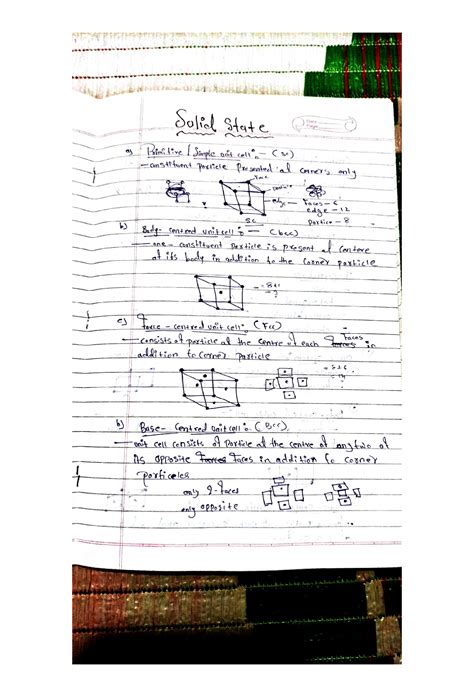 Solid State
a) Primitive / Simple unit cell :- (sc)
- constituent particle presented at corners only
Faces - 6
edge - 12
Partice - 8
SC
b) Body - centred unit cell :- (bcc)
- one - constituent particle is present at centere
of its body in addition to the corner particle
c) Face - centred unit cell :- (Fcc)
- consists of particle at the centre of each Faces in
addition to corner particle
b) Base - Centred unit cell :- (Bcc)
- unit cell consists of particle at the centre of any two of
its opposite Faces in addition to corner
particles
only 2 - faces
only opposite